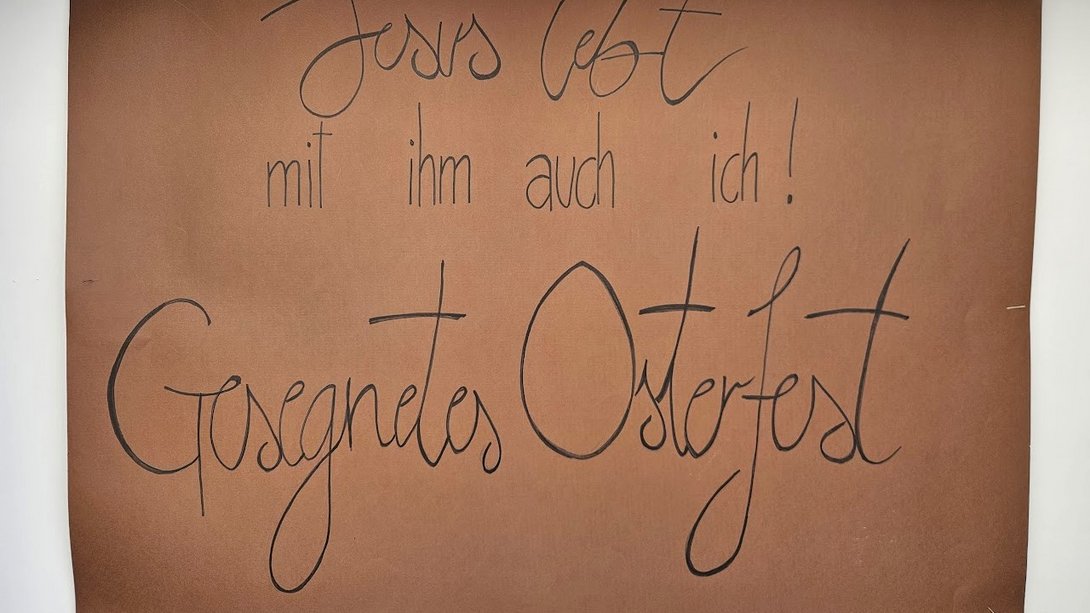 Jesus lebt
mit ihm auch ich!
Gesegnetes Osterfest